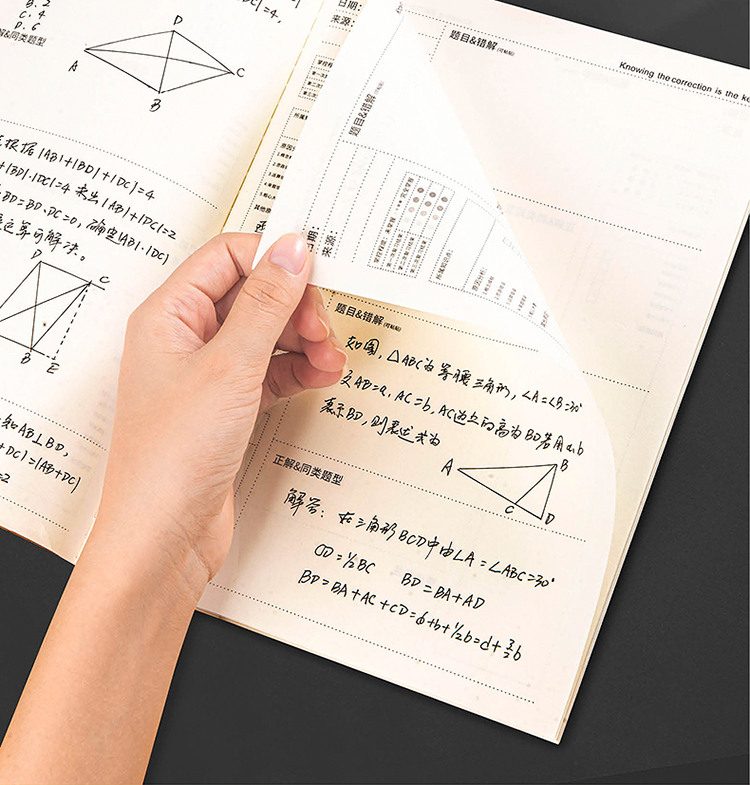 B. 2
C. 4
D. 6
&同类题型
A
D
C
B
根据|AB|+|BD|+|DC|=4
+|BD|·|DC|=4 求出|AB|+|DC|=2
BD=BD·DC=0, 确定|AB|·|DC|
运算可解决。
D
C
B
E
知AB⊥BD,
+DC)=|AB+DC|
=2
日期:
来源:
题目&错解(可粘贴)
Knowing the correction is the ke
题目&错解
来源:
所属知识点:
题目&错解(可粘贴)
如图, △ABC为等腰三角形, ∠A=∠B=30°
又AB=a, AC=b, AC边上的高为BD若用a,b
表示BD, 则表达式为
A
B
C
D
正解&同类题型
解答: 在三角形BCD中由∠A=∠ABC=30°
CD=1/2BC BD=BA+AD
BD=BA+AC+CD=a+b+1/2b=a+3/2b